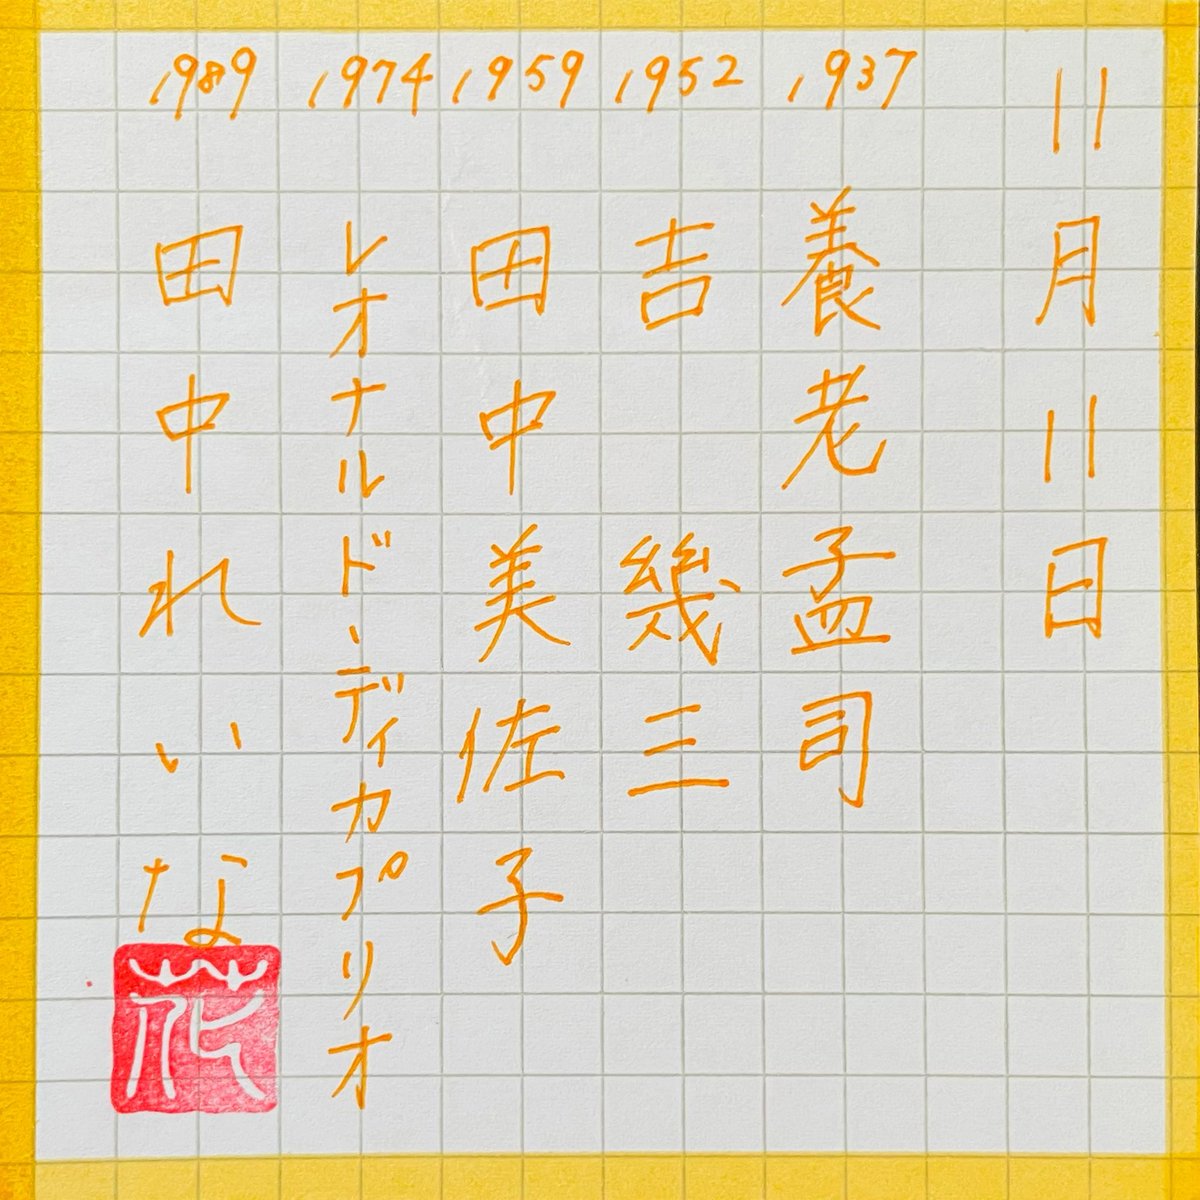 11月11日
1937 養老孟司
1952 吉 幾三
1959 田中美佐子
1974 レオナルド・ディカプリオ
1989 田中れいな
花